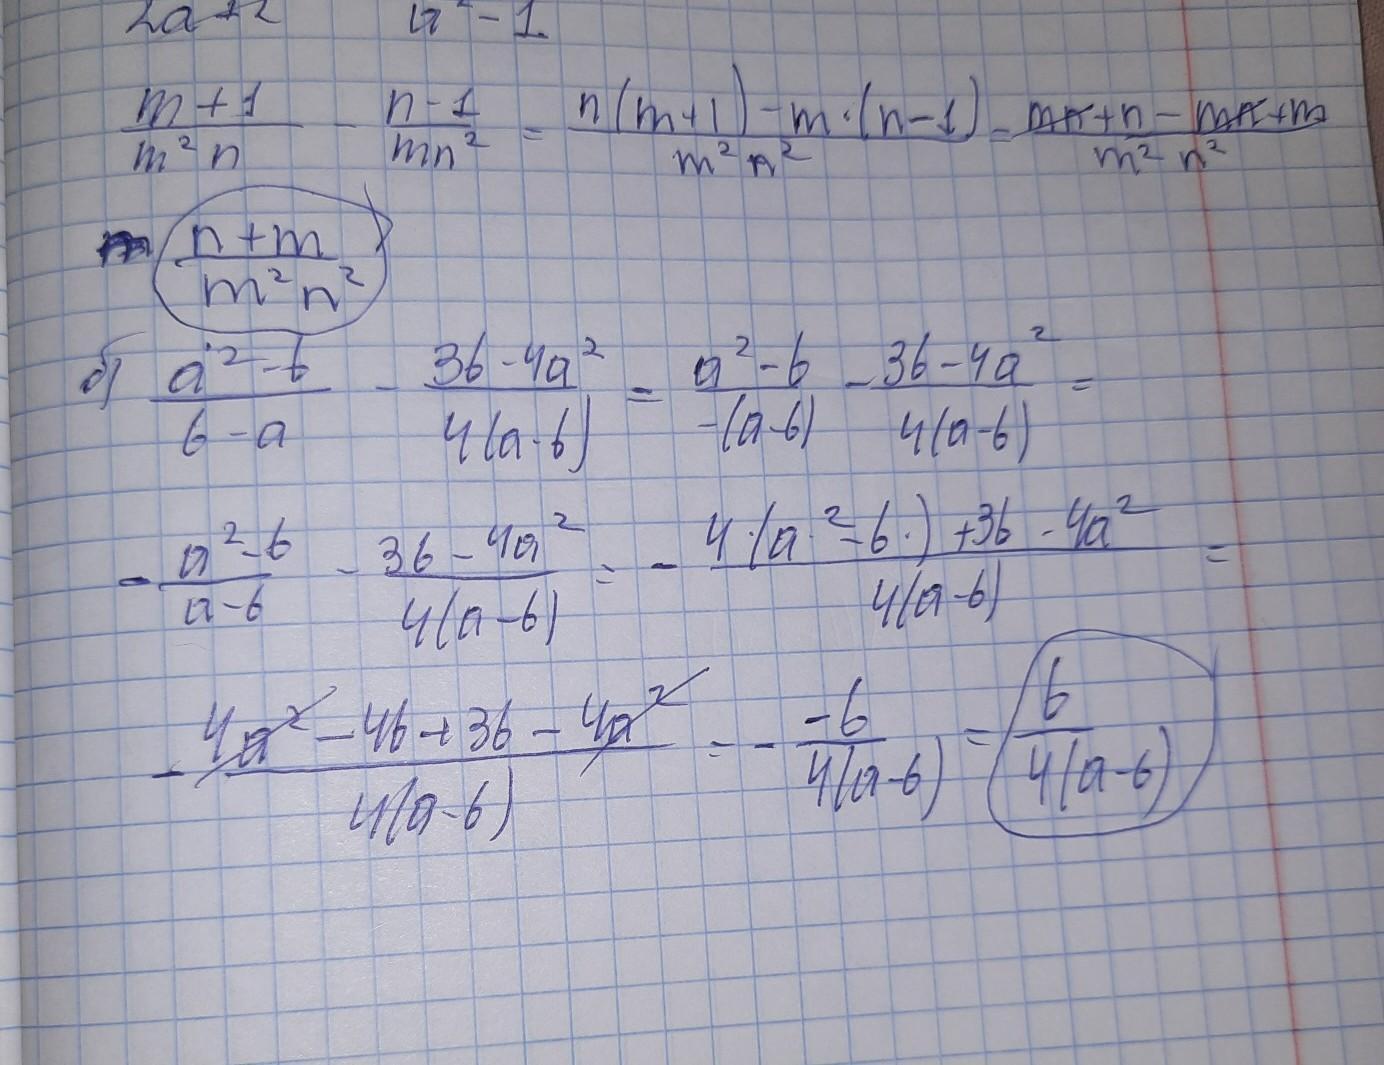 2a+2 a²-1
(m+1)/(m²n) - (n-1)/(mn²) = (n(m+1)-m·(n-1))/(m²n²) = (mn+n-mn+m)/(m²n²)
(n+m)/(m²n²)
б) (a²-b)/(b-a) - (3b-4a²)/(4(a-b)) = (a²-b)/(-(a-b)) - (3b-4a²)/(4(a-b)) =
- (a²-b)/(a-b) - (3b-4a²)/(4(a-b)) = - (4·(a²-b·)+3b-4a²)/(4(a-b)) =
- (4a²-4b+3b-4a²)/(4(a-b)) = - (-b)/(4(a-b)) = b/(4(a-b))